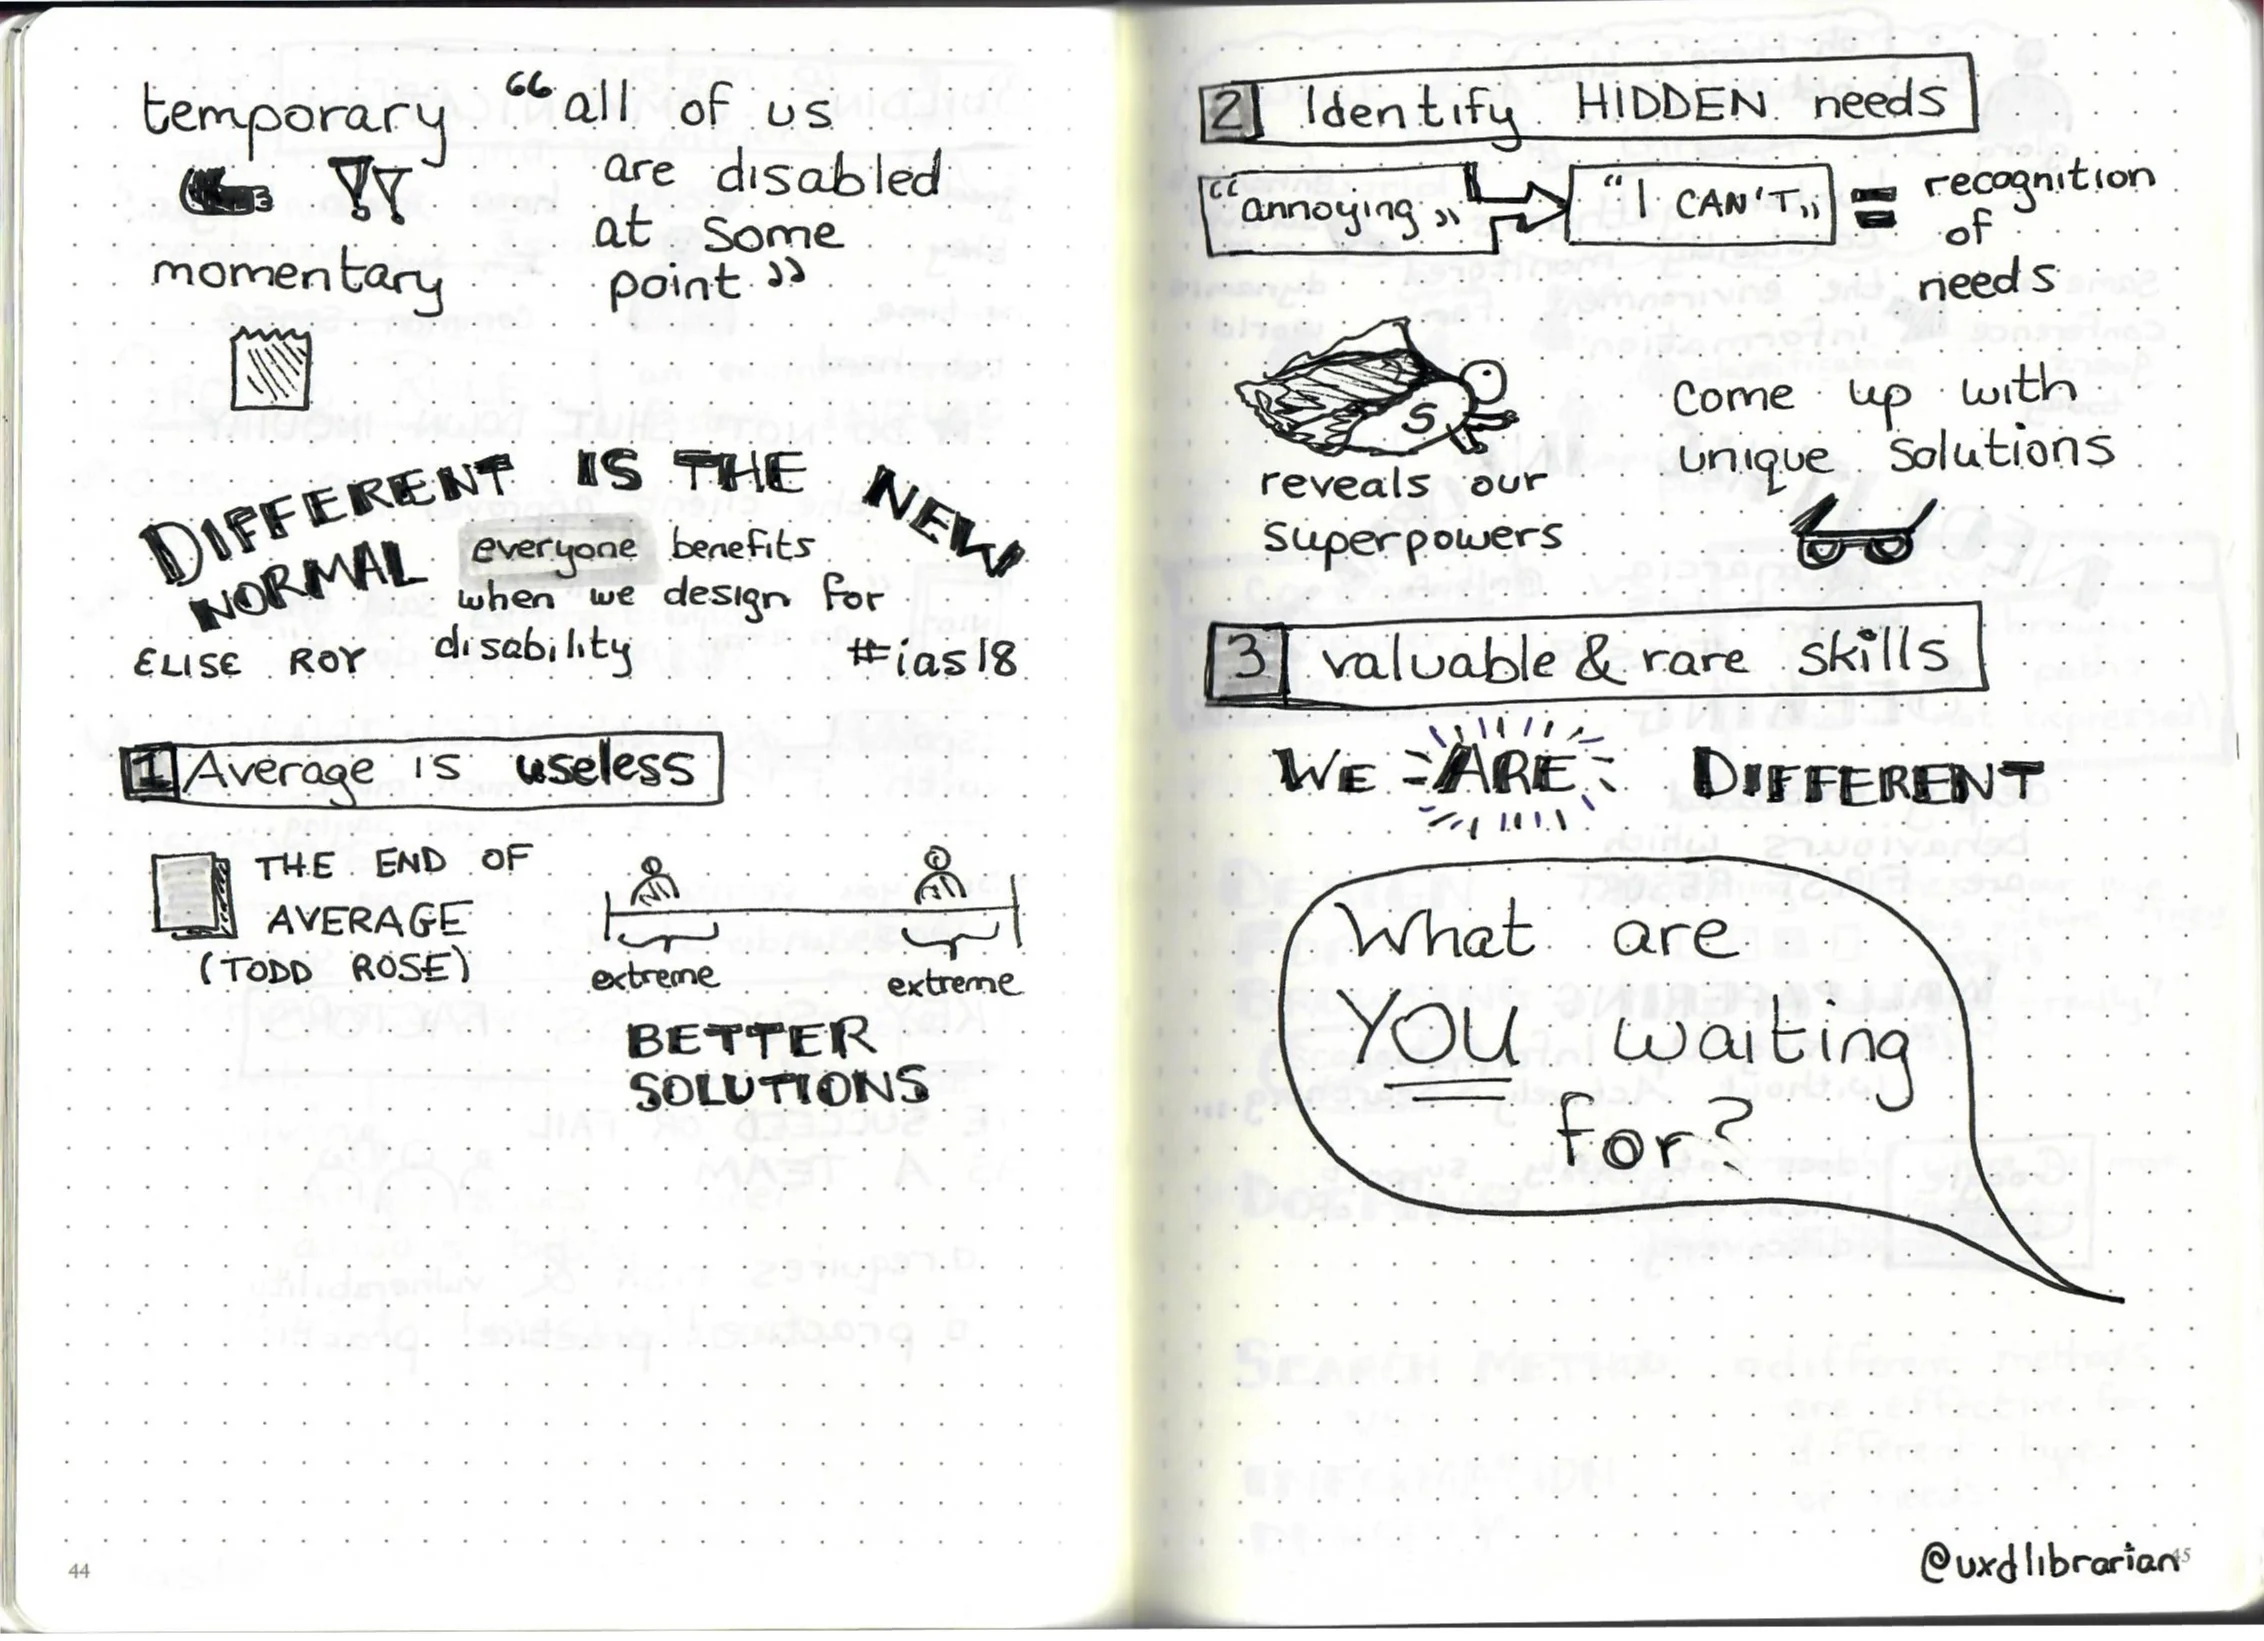 temporary
momentary
“all of us
are disabled
at some
point”
DIFFERENT IS THE NEW
NORMAL
everyone benefits
when we design for
disability
ELISE ROY
#ias18
1 Average is useless
THE END OF
AVERAGE
(TODD ROSE)
extreme
extreme
BETTER
SOLUTIONS
44
2 Identify HIDDEN needs
“annoying”
“I CAN'T”
=
recognition
of
needs
S
reveals our
superpowers
come up with
unique solutions
3 valuable & rare skills
WE ARE DIFFERENT
What are
YOU waiting
for?
@uxdlibrarian
45